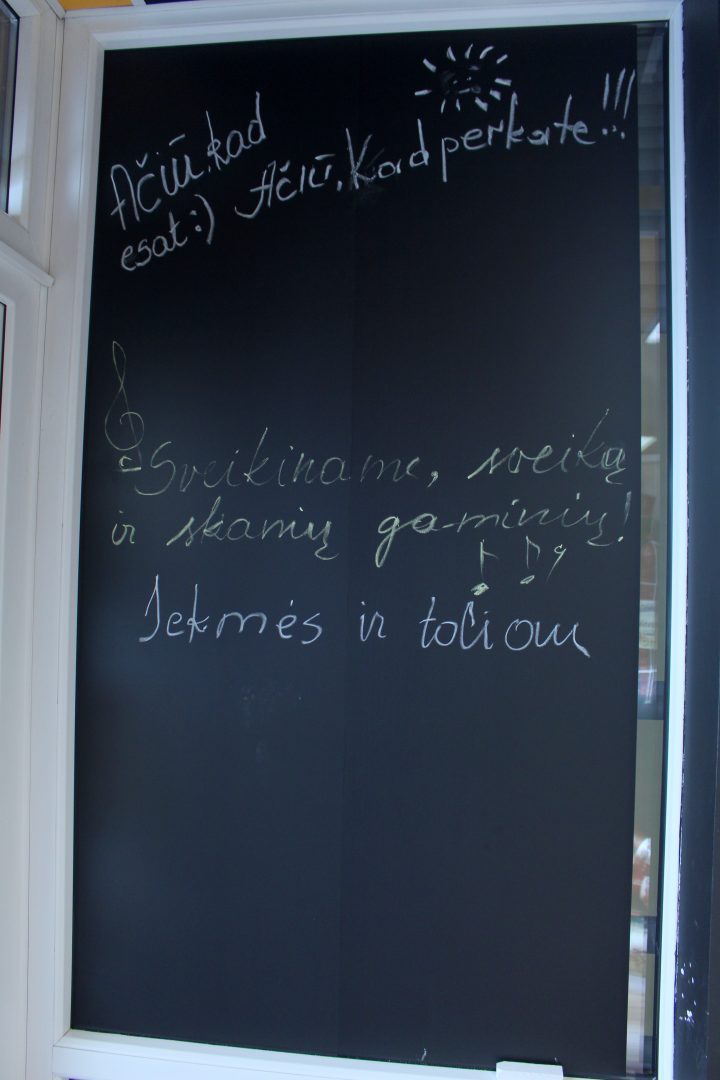 Ačiū, kad
esat :)
Ačiū, kad perkate!!!
Sveikiname, sveikų
ir skanių gaminių!
Sėkmės ir toliau